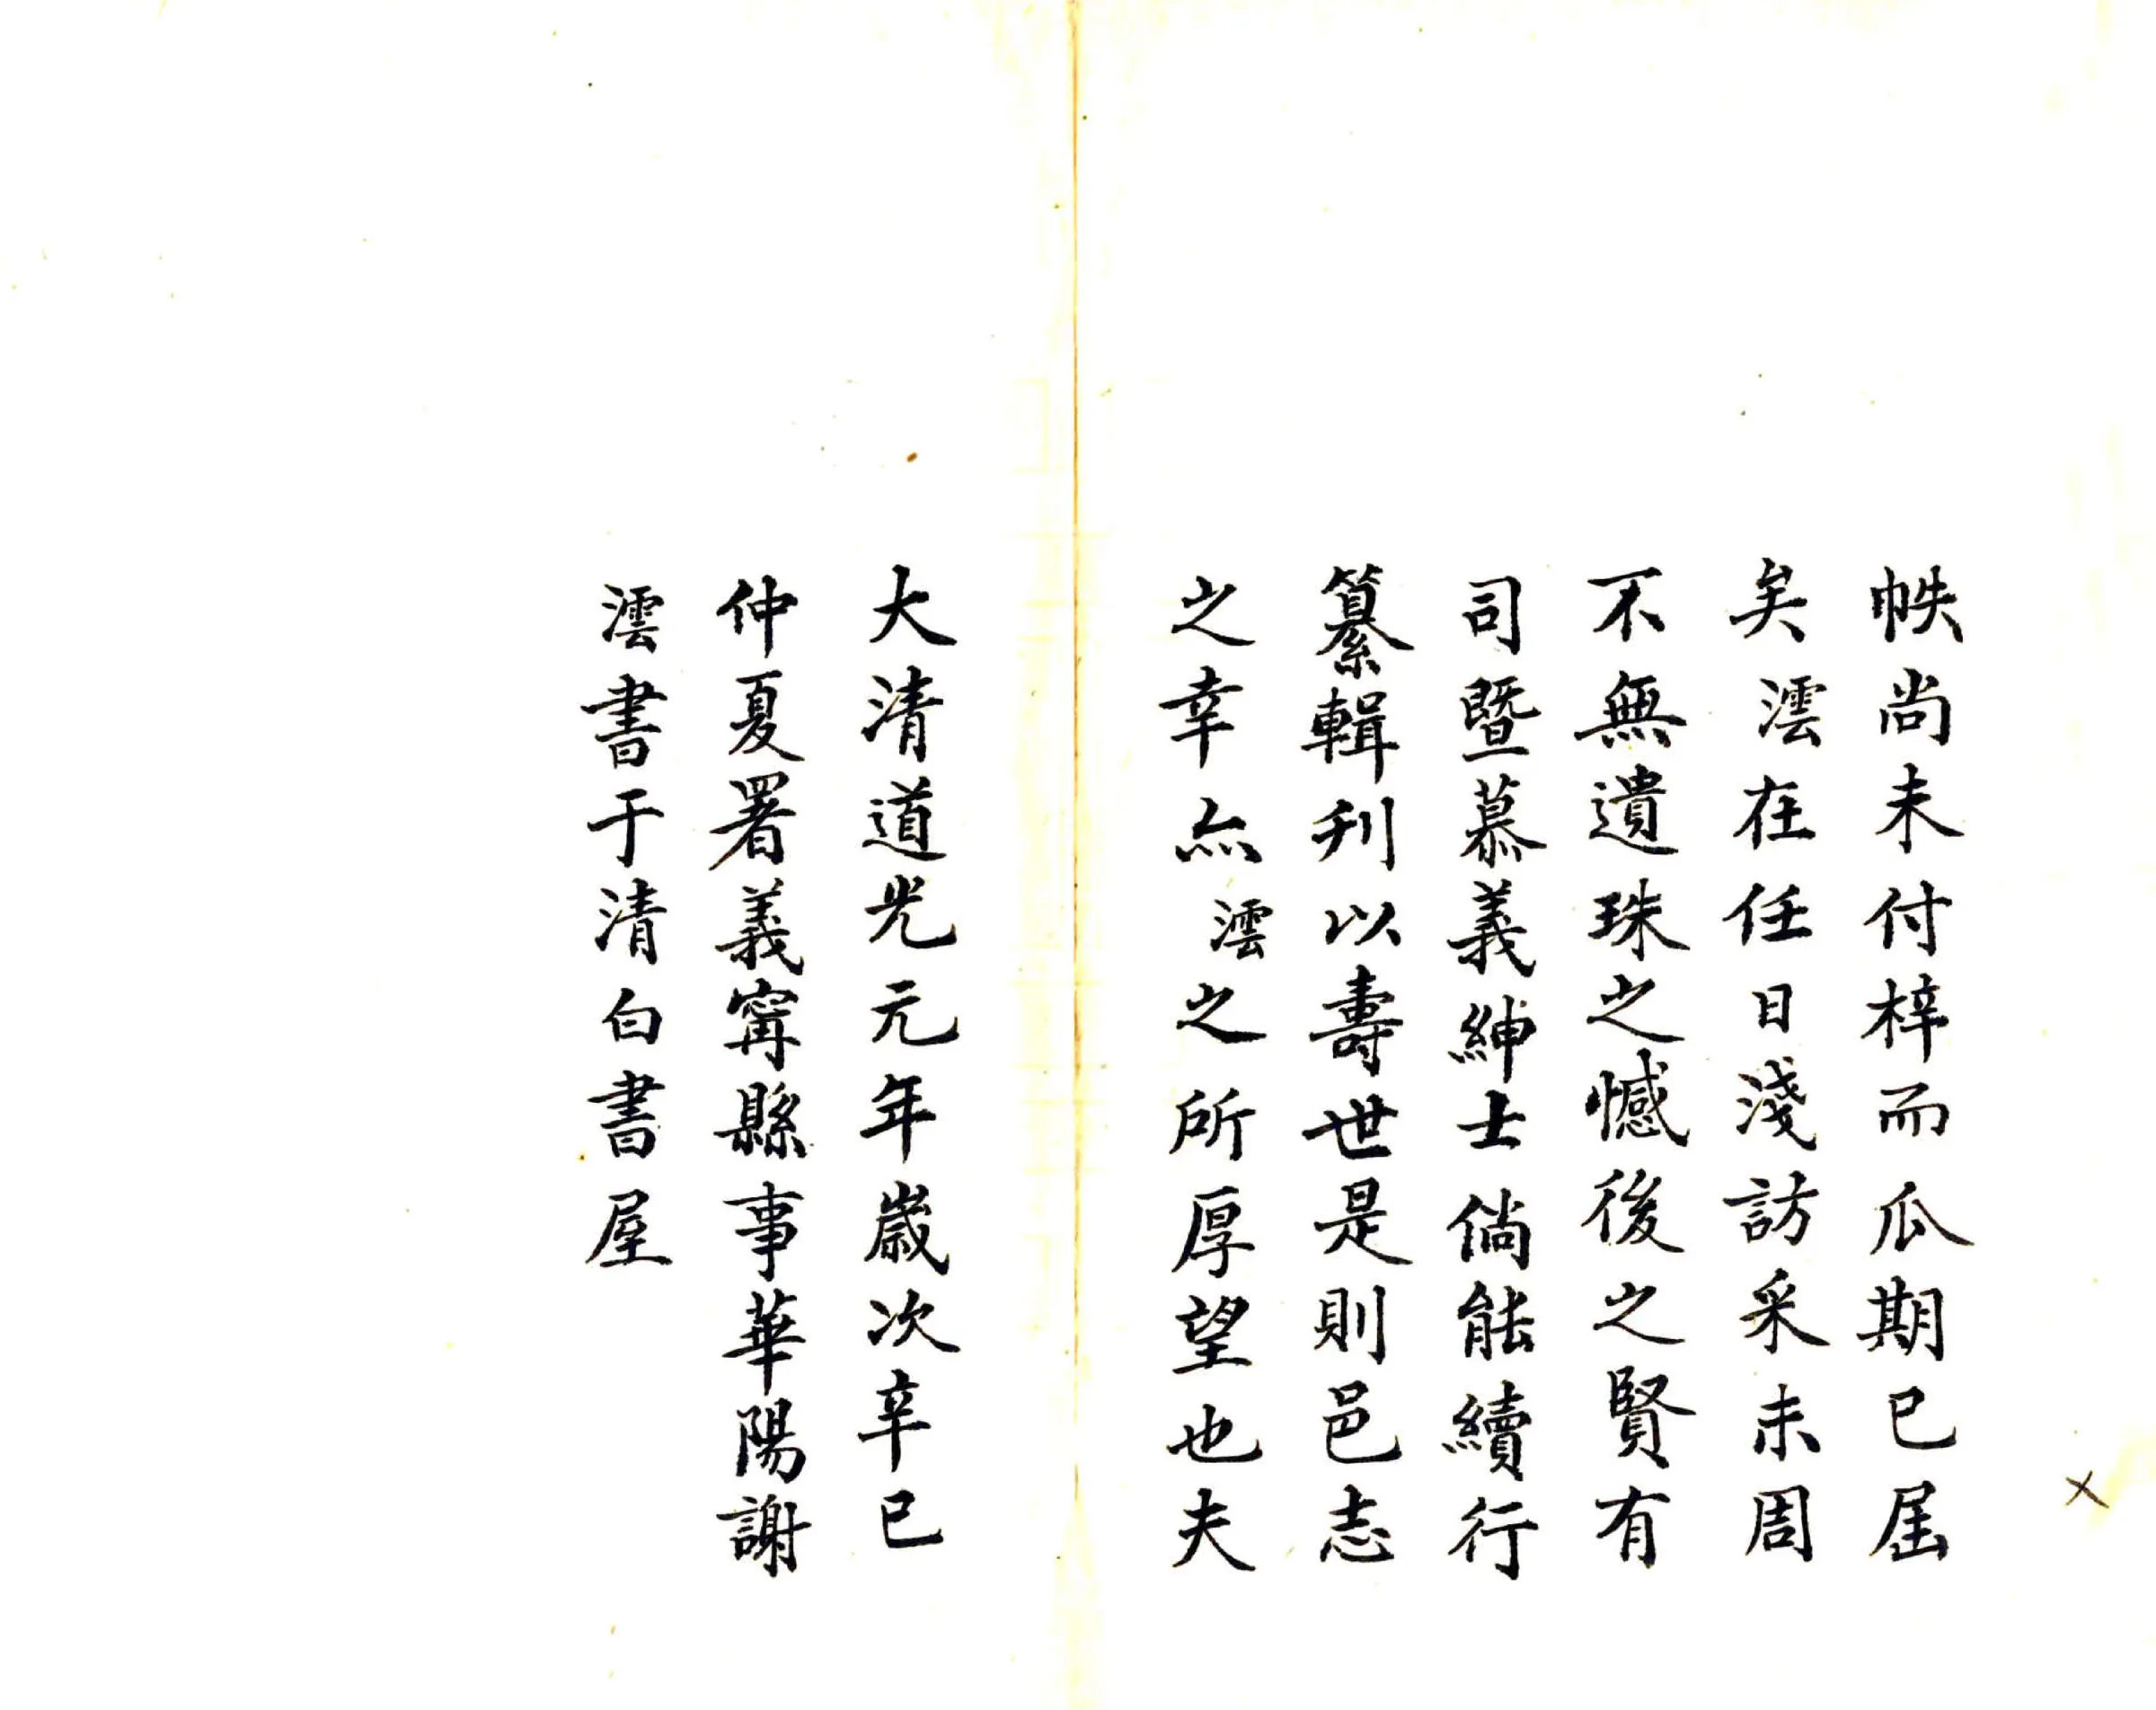 帙尚未付梓而瓜期已屆
矣澐在任日淺訪采未周
不無遺珠之憾後之賢有
司暨慕義紳士倘能續行
纂輯刋以壽世是則邑志
之幸亦澐之所厚望也夫
大清道光元年歲次辛巳
仲夏署義寗縣事華陽謝
澐書于清白書屋